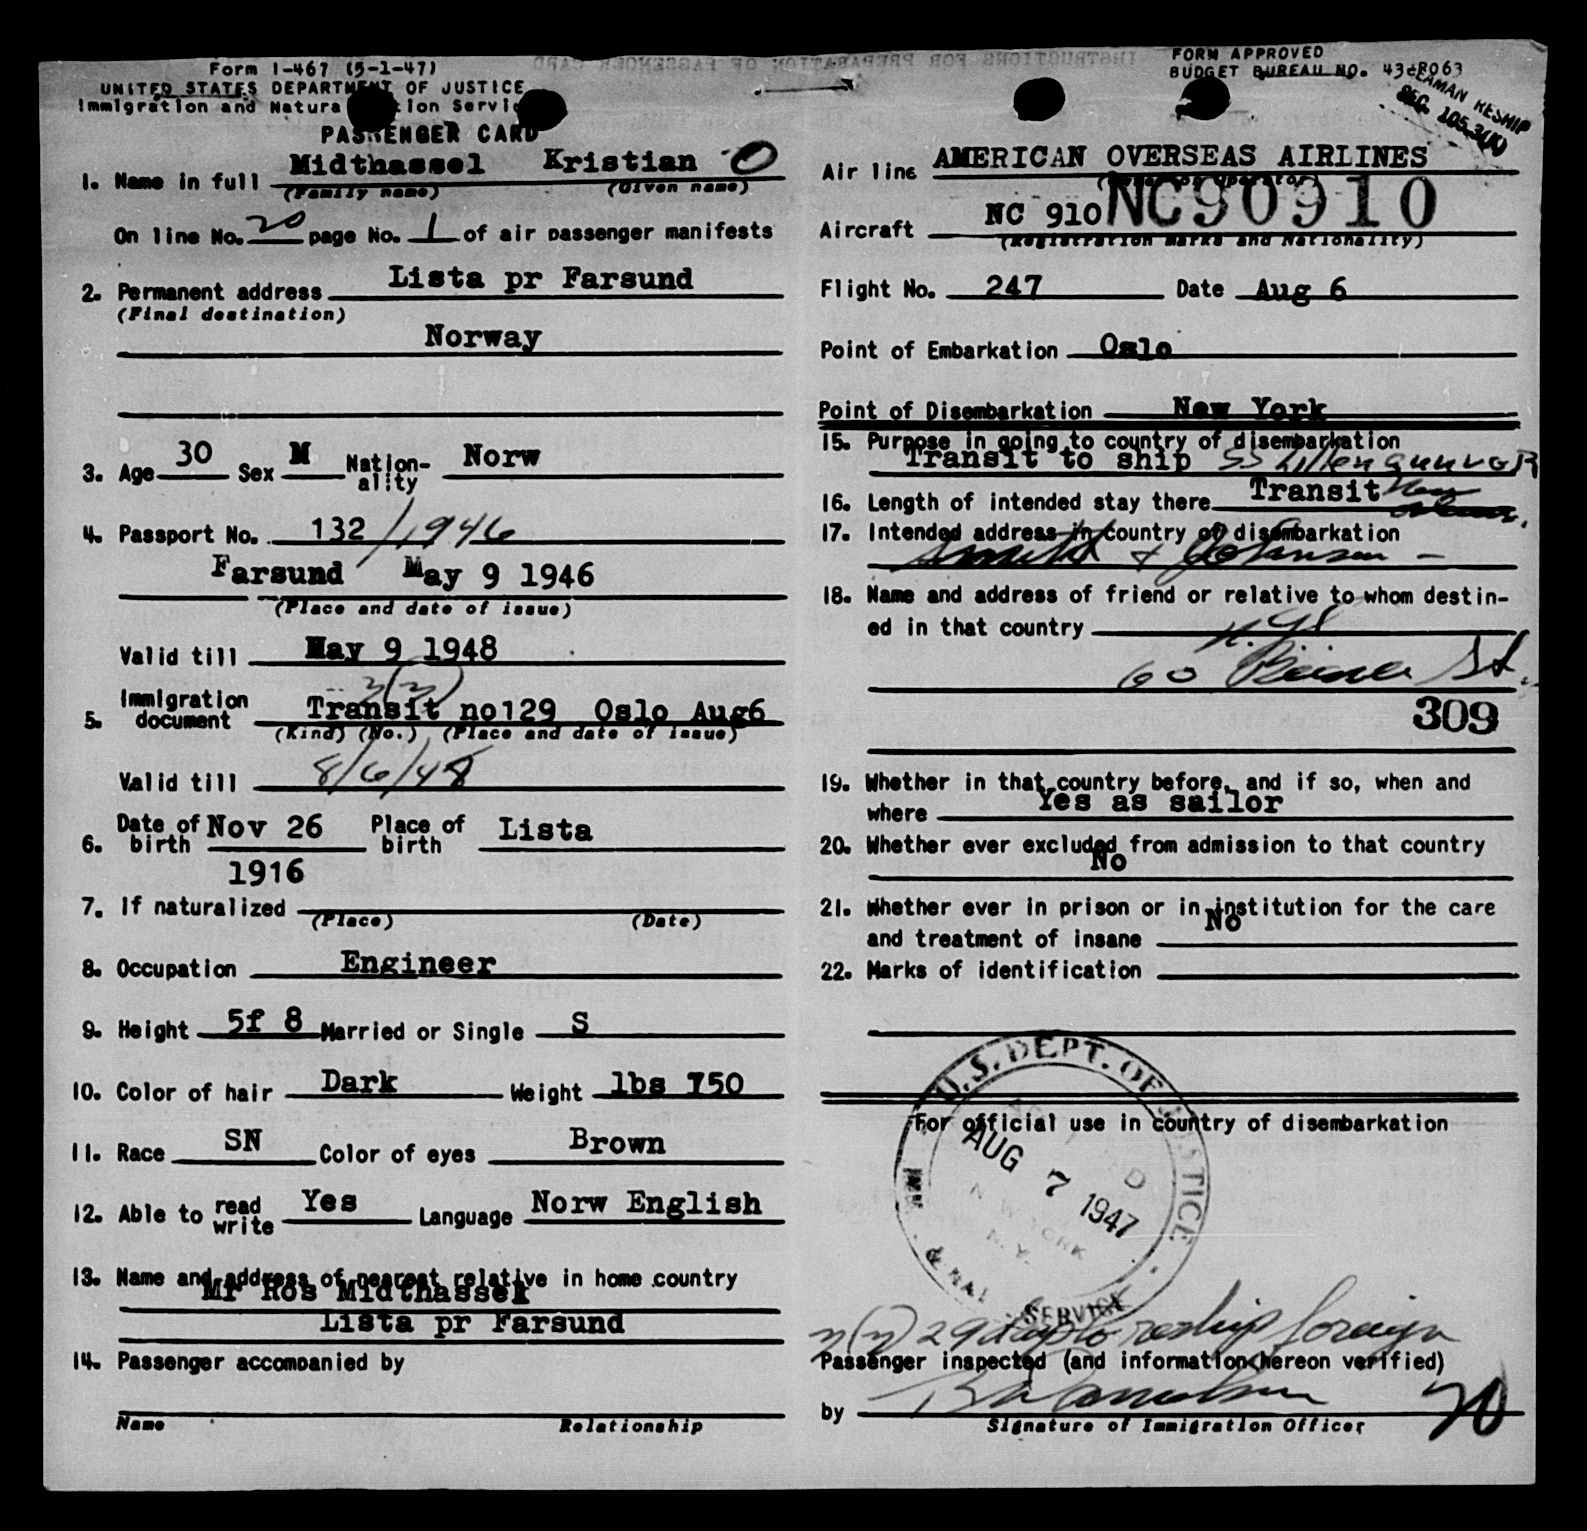 Form I-467 (5-1-47)
UNITED STATES DEPARTMENT OF JUSTICE
Immigration and Naturalization Service
PASSENGER CARD
1. Name in full Midthassel Kristian O
(Family name) (Given name)
On line No. 20 page No. 1 of air passenger manifests
2. Permanent address Lista pr Farsund
(Final destination)
Norway
3. Age 30 Sex M Nation-ality Norw
4. Passport No. 132/1946
Farsund May 9 1946
(Place and date of issue)
Valid till May 9 1948
3(3)
5. Immigration document Transit no129 Oslo Aug6
(Kind) (No.) (Place and date of issue)
Valid till 8/6/48
6. Date of birth Nov 26 Place of birth Lista
1916
7. If naturalized
(Place) (Date)
8. Occupation Engineer
9. Height 5f 8 Married or Single S
10. Color of hair Dark Weight lbs 150
11. Race SN Color of eyes Brown
12. Able to read write Yes Language Norw English
13. Name and address of nearest relative in home country
Mr Ros Midthassel
Lista pr Farsund
14. Passenger accompanied by
Name Relationship
FORM APPROVED
BUDGET BUREAU NO. 43-R063
SEAMAN RESHIP
SEC. 105.3(A)
Air line AMERICAN OVERSEAS AIRLINES
Aircraft NC 910 NC90910
(Registration marks and Nationality)
Flight No. 247 Date Aug 6
Point of Embarkation Oslo
Point of Disembarkation New York
15. Purpose in going to country of disembarkation
Transit to ship SS Lillengunvor
16. Length of intended stay there Transit
17. Intended address in country of disembarkation
Smith & Johnson
18. Name and address of friend or relative to whom destin-
ed in that country N.Y.
60 St.
309
19. Whether in that country before, and if so, when and
where Yes as sailor
20. Whether ever excluded from admission to that country
No
21. Whether ever in prison or in institution for the care
and treatment of insane No
22. Marks of identification
For official use in country of disembarkation
U.S. DEPT. OF JUSTICE
AUG 7 1947
N. Y.
SERVICE
29 days to reship foreign
Passenger inspected (and information hereon verified)
by
Signature of Immigration Officer